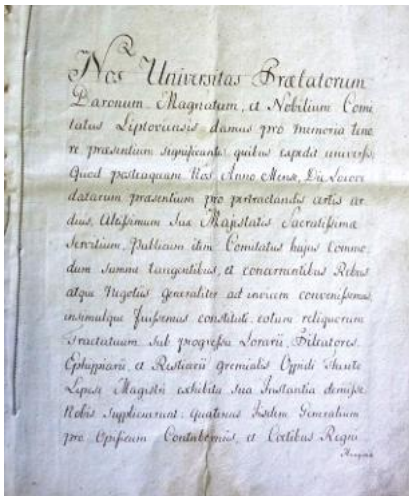 Nos Universitas Prælatorum
Baronum Magnatum, et Nobilium Comi
tatus Liptoviensis damus pro memoria teno
re præsentium significantes quibus expedit universis,
Quod posteaquam Nos Anno Mense, Die Locove
datarum præsentium pro pertractandis certis ar
duis, Altissimum Suæ Majestatis Sacratissimæ
Servitium, Publicum item Comitatus hujus Commo
dum summe tangentibus, et concernentibus Rebus
atque Negotiis generaliter ad invicem convenissemus,
insimulque fuissemus constituti, eotum reliquorum
Tractatuum sub progressu Lorarii, Pileatores
Ephippiarii, et Restiarii gremialis Oppidi
Magistri exhibita sua Instantia demisse
Nobis supplicarunt: quatenus Iisdem Generalium
pro Opificum Contuberniis, et Cœtibus Regni